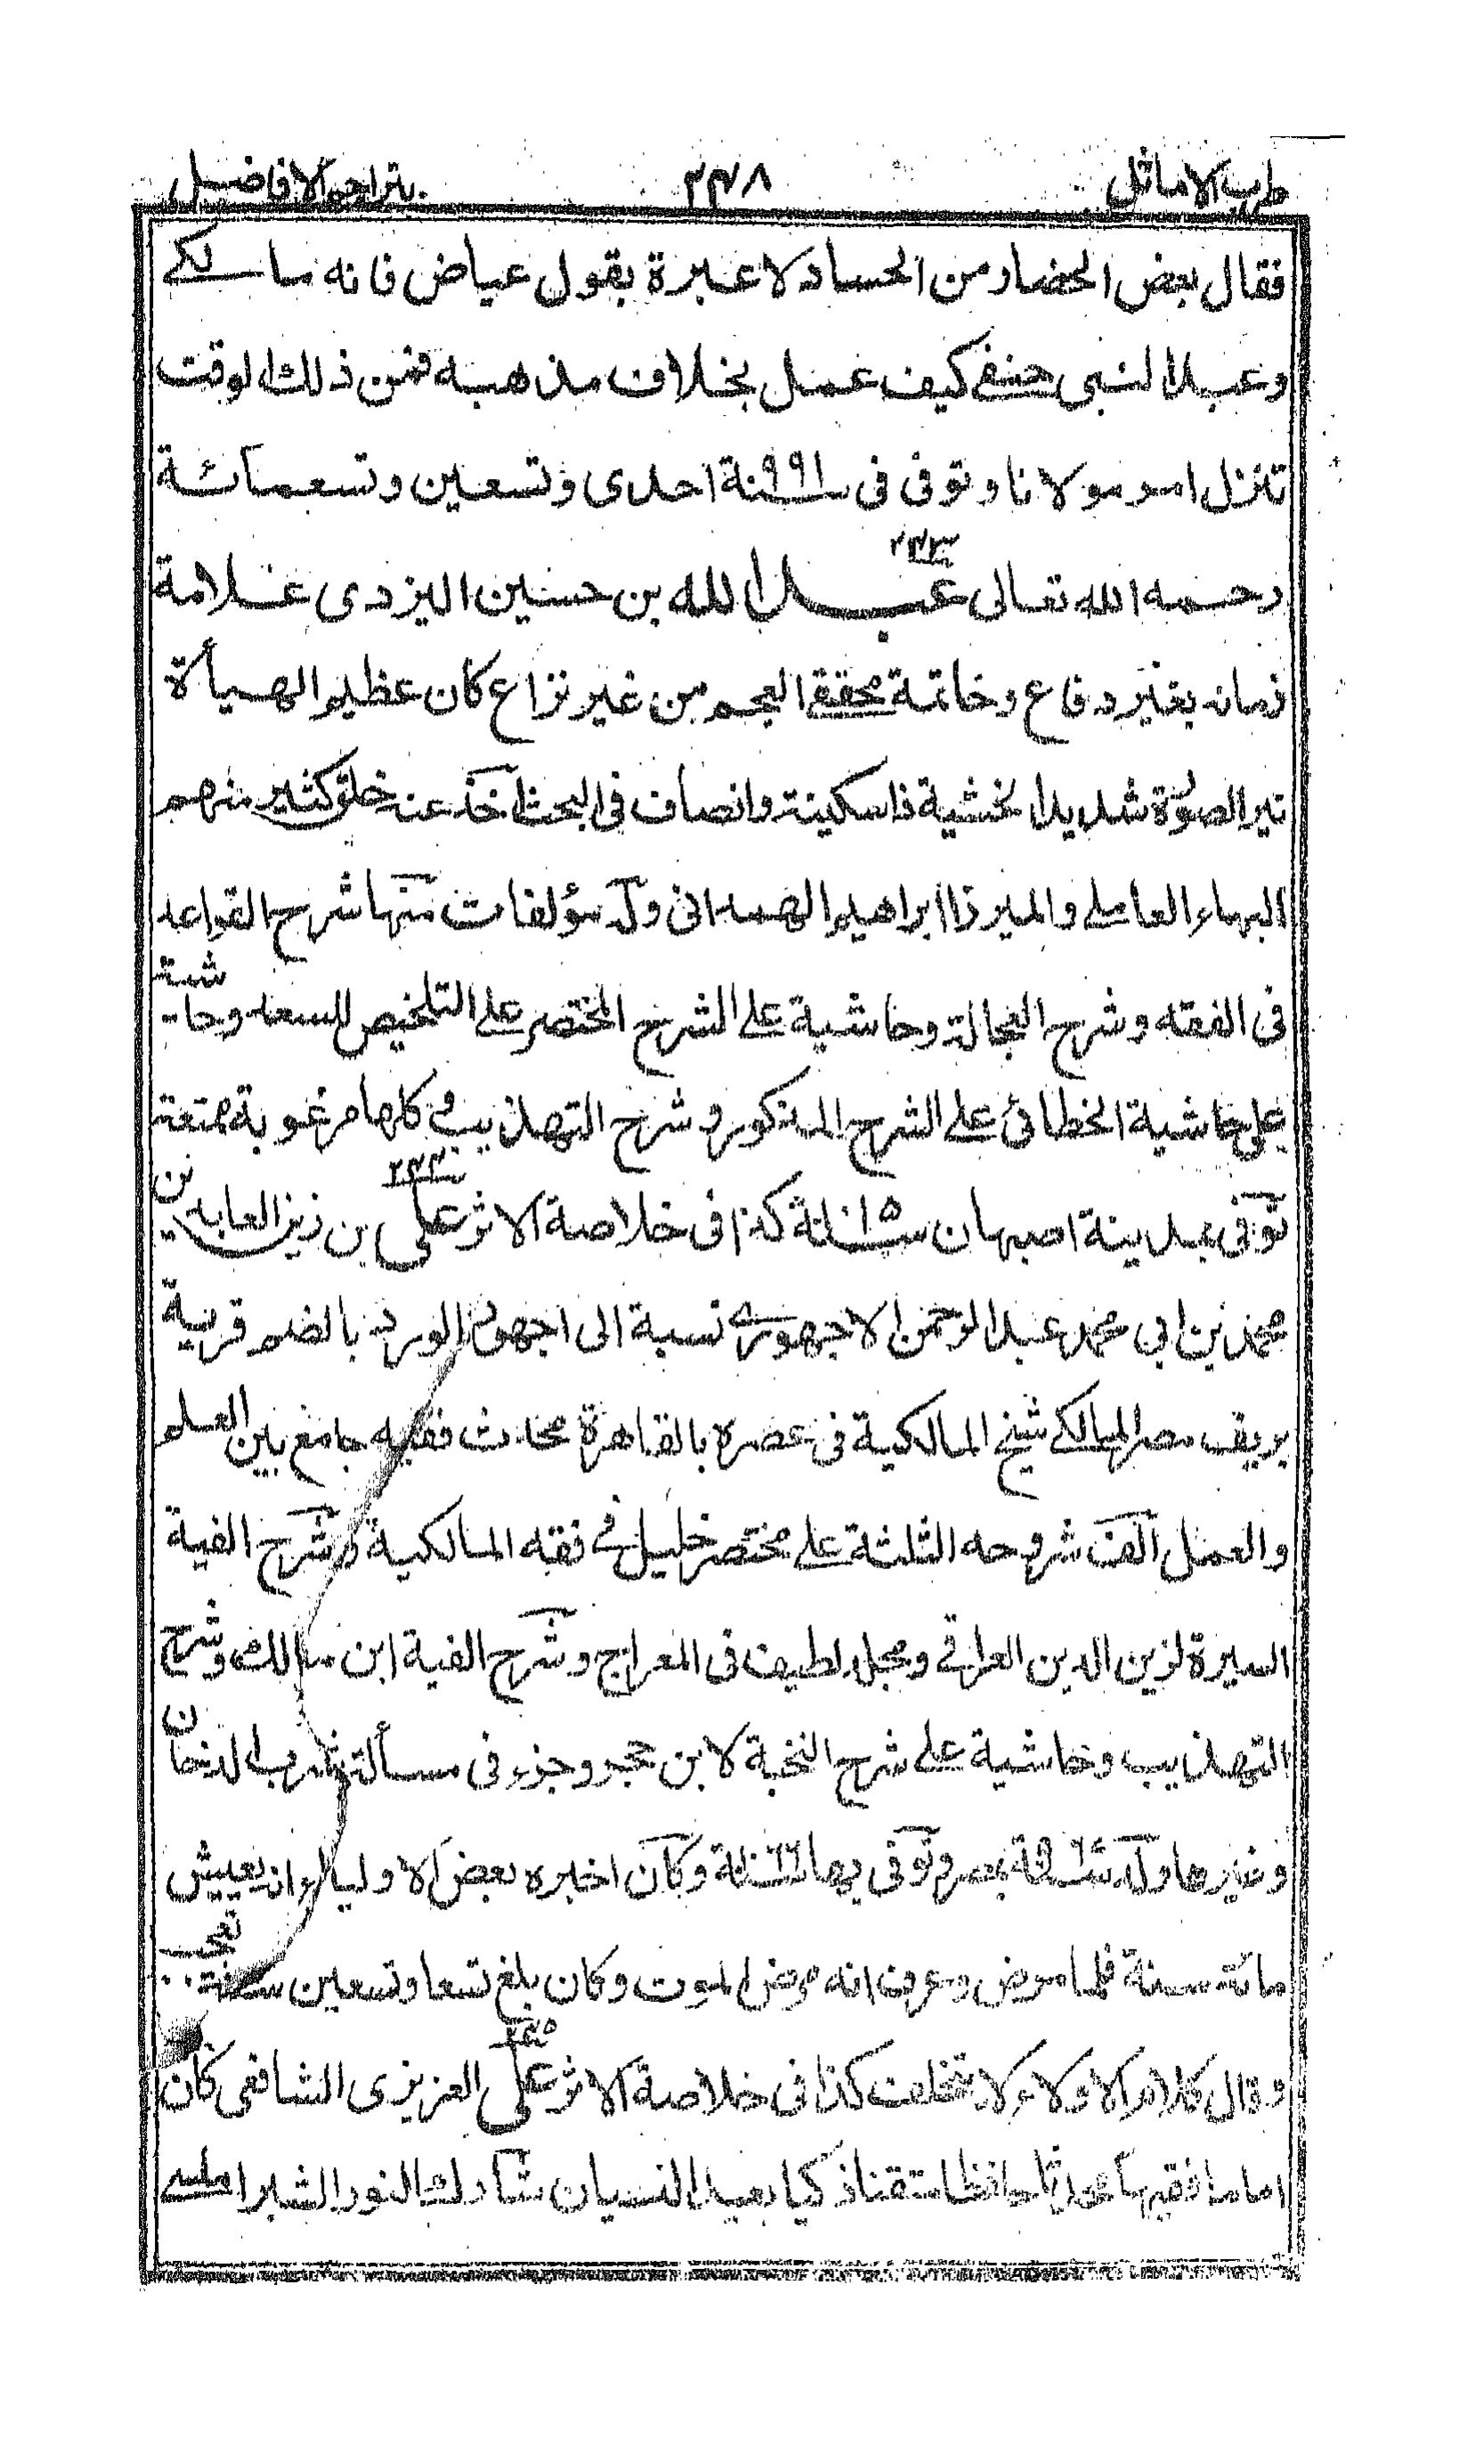 طرب الاماثل ٢٤٨ بتراجم الافاضل
فقال بعض الحضار من الحساد لا عبرة بقول عياض فانه مالكے
وعبد النبى حنفے كيف عمل بخلاف مذهبه فمن ذلك الوقت
تنزل امر مولانا وتوفى فى سنة ٩٩١ احدى وتسعين وتسعمائة
رحمه الله تعالى ٢٤٣ عبد الله بن حسين اليزدى علامة
زمانه بغير دفاع وخاتمة محققے العجم من غير نزاع كان عظيم الهيأة
نير الصورة شديد الخشية ذا سكينة وانصاف فى البحث اخذ عنه خلق كثير منهم
البهاء العاملے والميرزا ابراهيم الهمدانى وله مؤلفات منها شرح القواعد
فى الفقه وشرح العجالة وحاشية علے الشرح المختصر علے التلخيص للسعد وحاشية
علے حاشية الخطائى علے الشرح المذكور وشرح التهذيب وكلها مرغوبة ممتعة
توفى بمدينة اصبهان سنة ١٠١٥ كذا فى خلاصة الاثر ٢٤٤ على بن زين العابدين
محمد بن ابى محمد عبد الرحمن الاجهورے نسبة الى اجهور الورد بالضم قرية
بريف مصر المالكے شيخ المالكية فى عصره بالقاهرة محدث فقيه جامع بين العلم
والعمل الف شروحه الثلثة علے مختصر خليل فے فقه المالكية وشرح الفية
السيرة لزين الدين العراقے ومجلد لطيف فى المعراج وشرح الفية ابن مالك وشرح
التهذيب وحاشية علے شرح النخبة لابن حجر وجزء فى مسألة شرب الدخان
وغيرها ولد سنة ٩٦٧ بمصر وتوفى بها سنة ١٠٦٦ وكان اخبره بعض الاولياء انه يعيش
مائة سنة فلما مرض وعرف انه مرض الموت وكان بلغ تسعا وتسعين سنة تعجب
وقال كلام الاولاء لا يتخلف كذا فى خلاصة الاثر ٢٤٥ على العزيزى الشافعى كان
اماما فقيها محدثا حافظا متقنا ذكيا بعيد النسيان شارك النور الشبراملسے